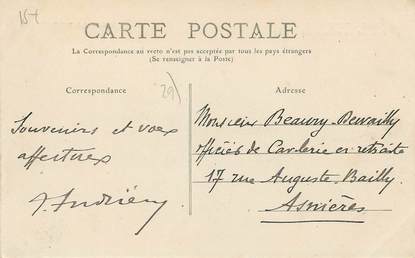 15+
CARTE POSTALE
La Correspondance au verso n'est pas acceptée par tous les pays étrangers
(Se renseigner à la Poste)
Correspondance
29)
Adresse
Souvenirs et voeux
affectueux
Monsieur Beaury-Dewailly
officier de Cavalerie en retraite
17 rue Auguste Bailly
Asnières